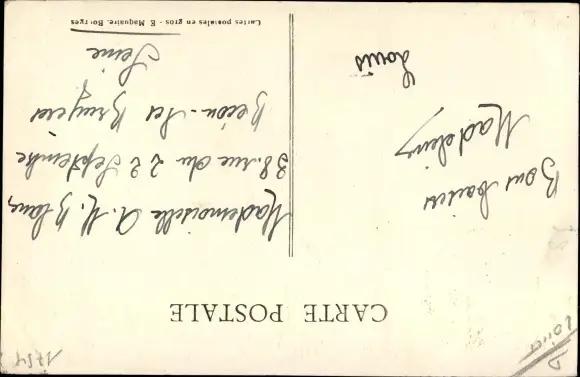 CARTE POSTALE
Bons baisers
Madeleine
Louis
Mademoiselle A. M. Blanc
38. rue du 22 Septembre
Bécon-les Bruyères
Seine
Cartes postales en gros - E Maquaire, Bourges
1754